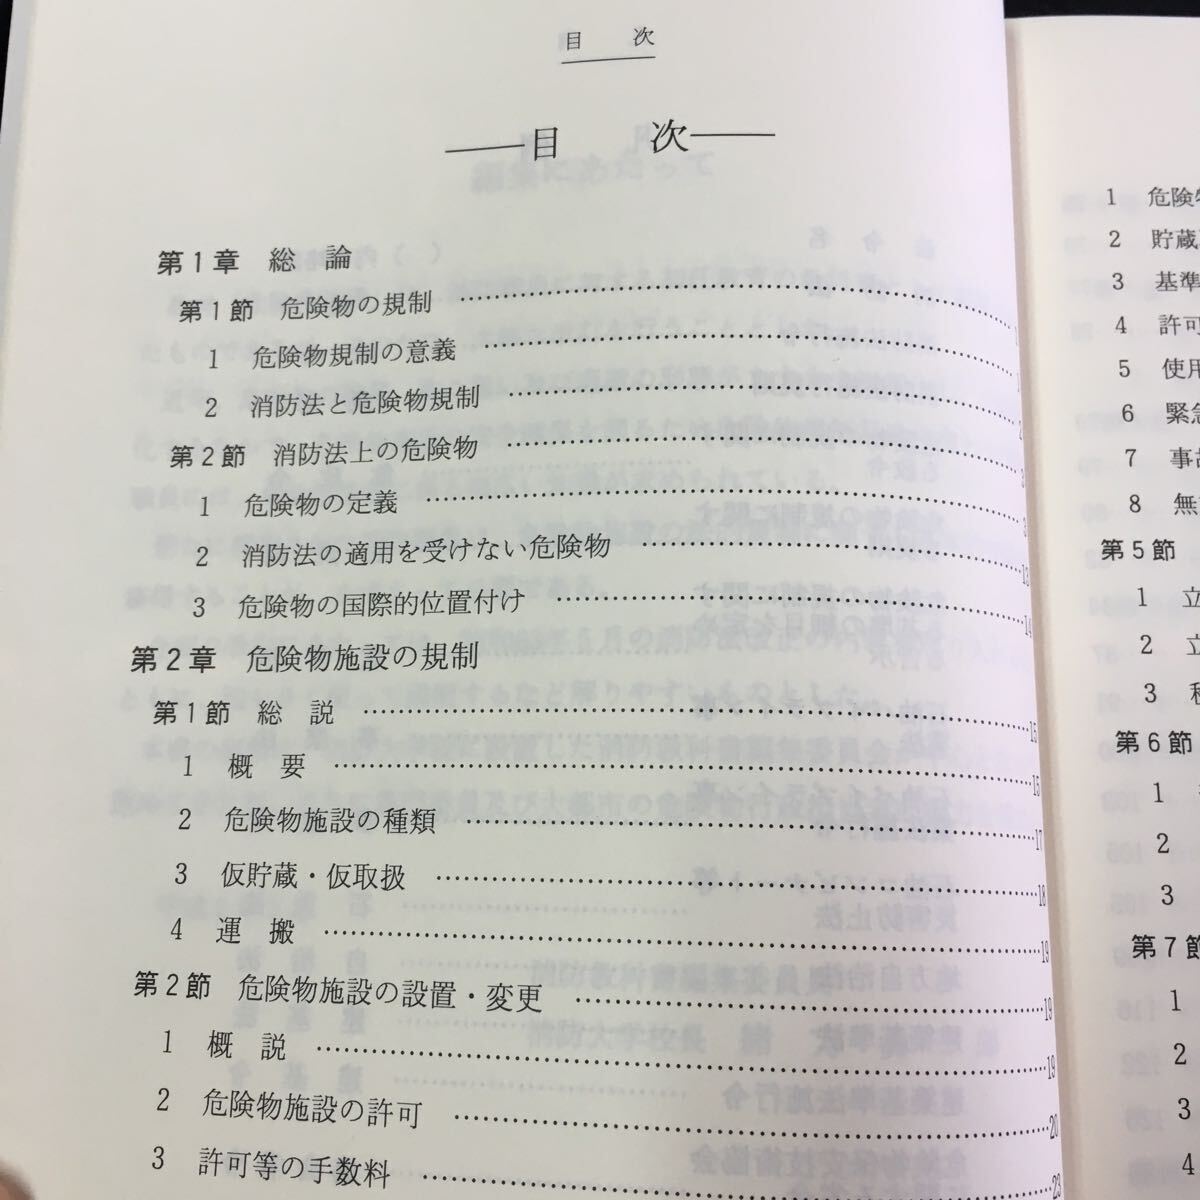 目 次
目 次
第1章 総 論
第1節 危険物の規制 1
1 危険物規制の意義 1
2 消防法と危険物規制 2
第2節 消防法上の危険物 3
1 危険物の定義 3
2 消防法の適用を受けない危険物 13
3 危険物の国際的位置付け 14
第2章 危険物施設の規制
第1節 総 説 15
1 概 要 15
2 危険物施設の種類 17
3 仮貯蔵・仮取扱 18
4 運 搬 19
第2節 危険物施設の設置・変更 19
1 概 説 19
2 危険物施設の許可 20
3 許可等の手数料 23
1 危険
2 貯蔵
3 基準
4 許可
5 使用
6 緊急
7 事故
8 無
第5節
1 立
2 立
3
第6節
1
2
3
第7節
1
2
3
4